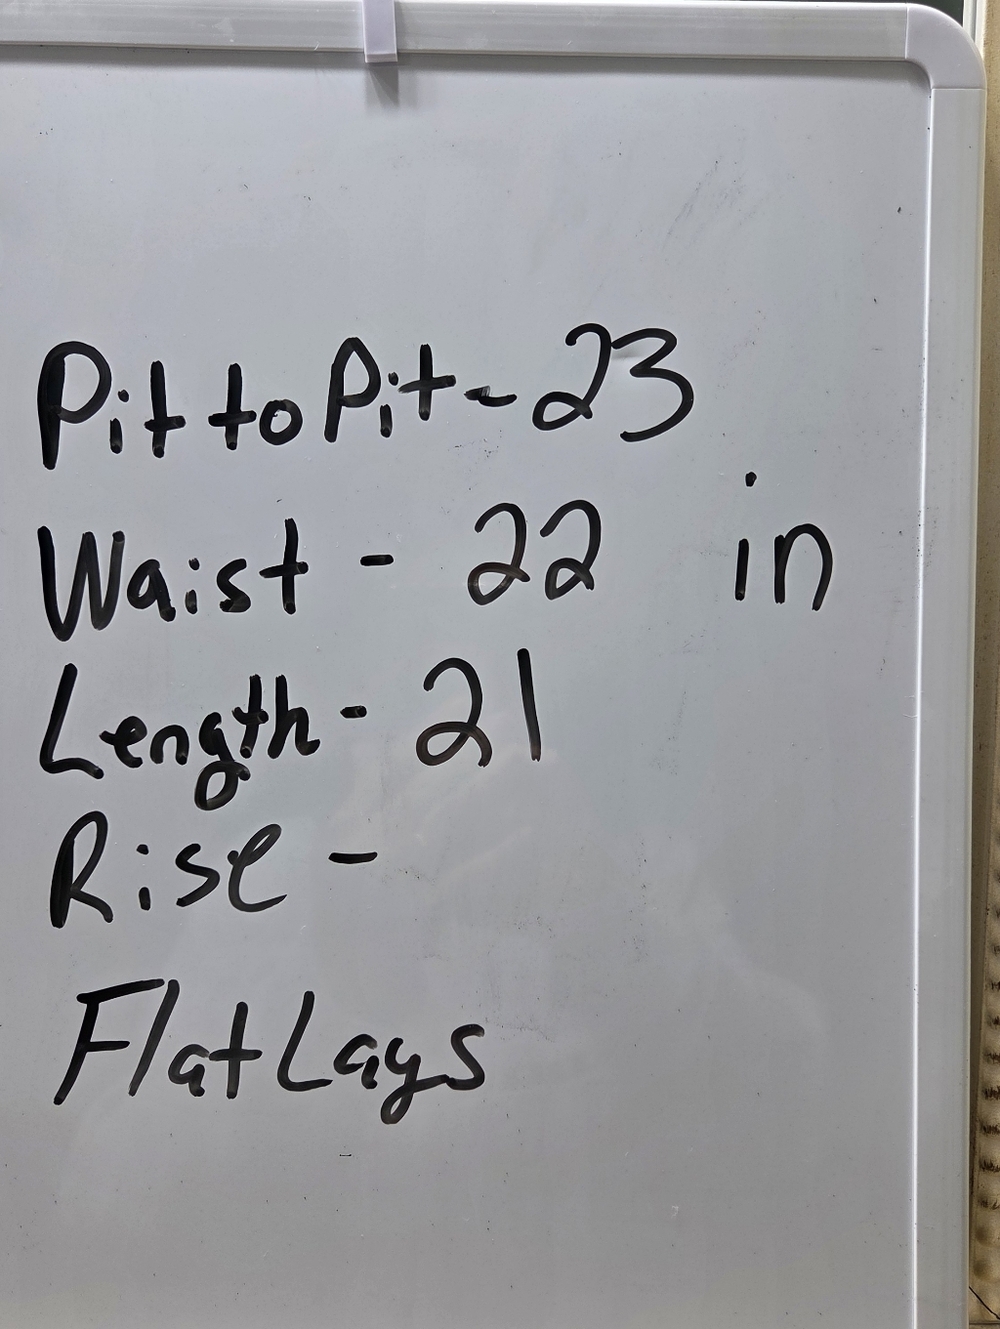 Pit to Pit - 23
Waist - 22 in
Length - 21
Rise -
Flat Lays